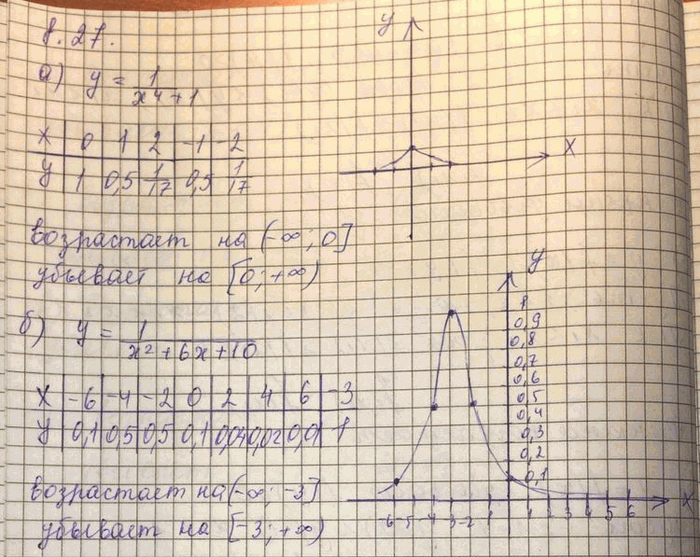 8.27.
а) y = 1/(x⁴+1)
x 0 1 2 -1 -2
y 1 0,5 1/17 0,5 1/17
возрастает на (-∞; 0]
убывает на [0; +∞)
y
x
б) y = 1/(x²+6x+10)
x -6 -4 -2 0 2 4 6 -3
y 0,1 0,5 0,5 0,1 0,04 0,02 0,01 1
возрастает на (-∞; -3]
убывает на [-3; +∞)
y
1
0,9
0,8
0,7
0,6
0,5
0,4
0,3
0,2
0,1
-6 -5 -4 -3 -2 -1 1 2 3 4 5 6
x